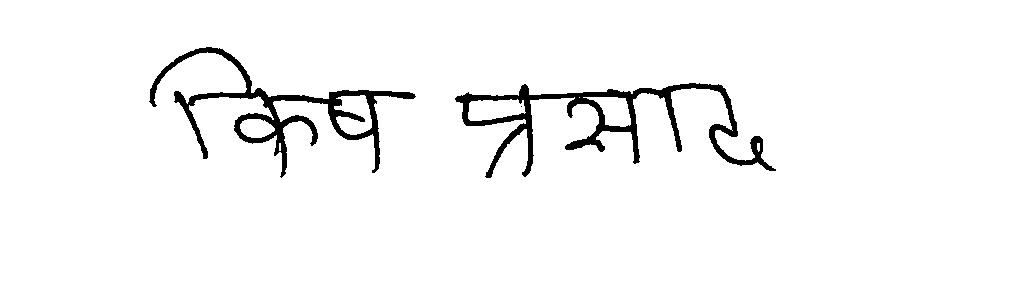 किष प्रसाद